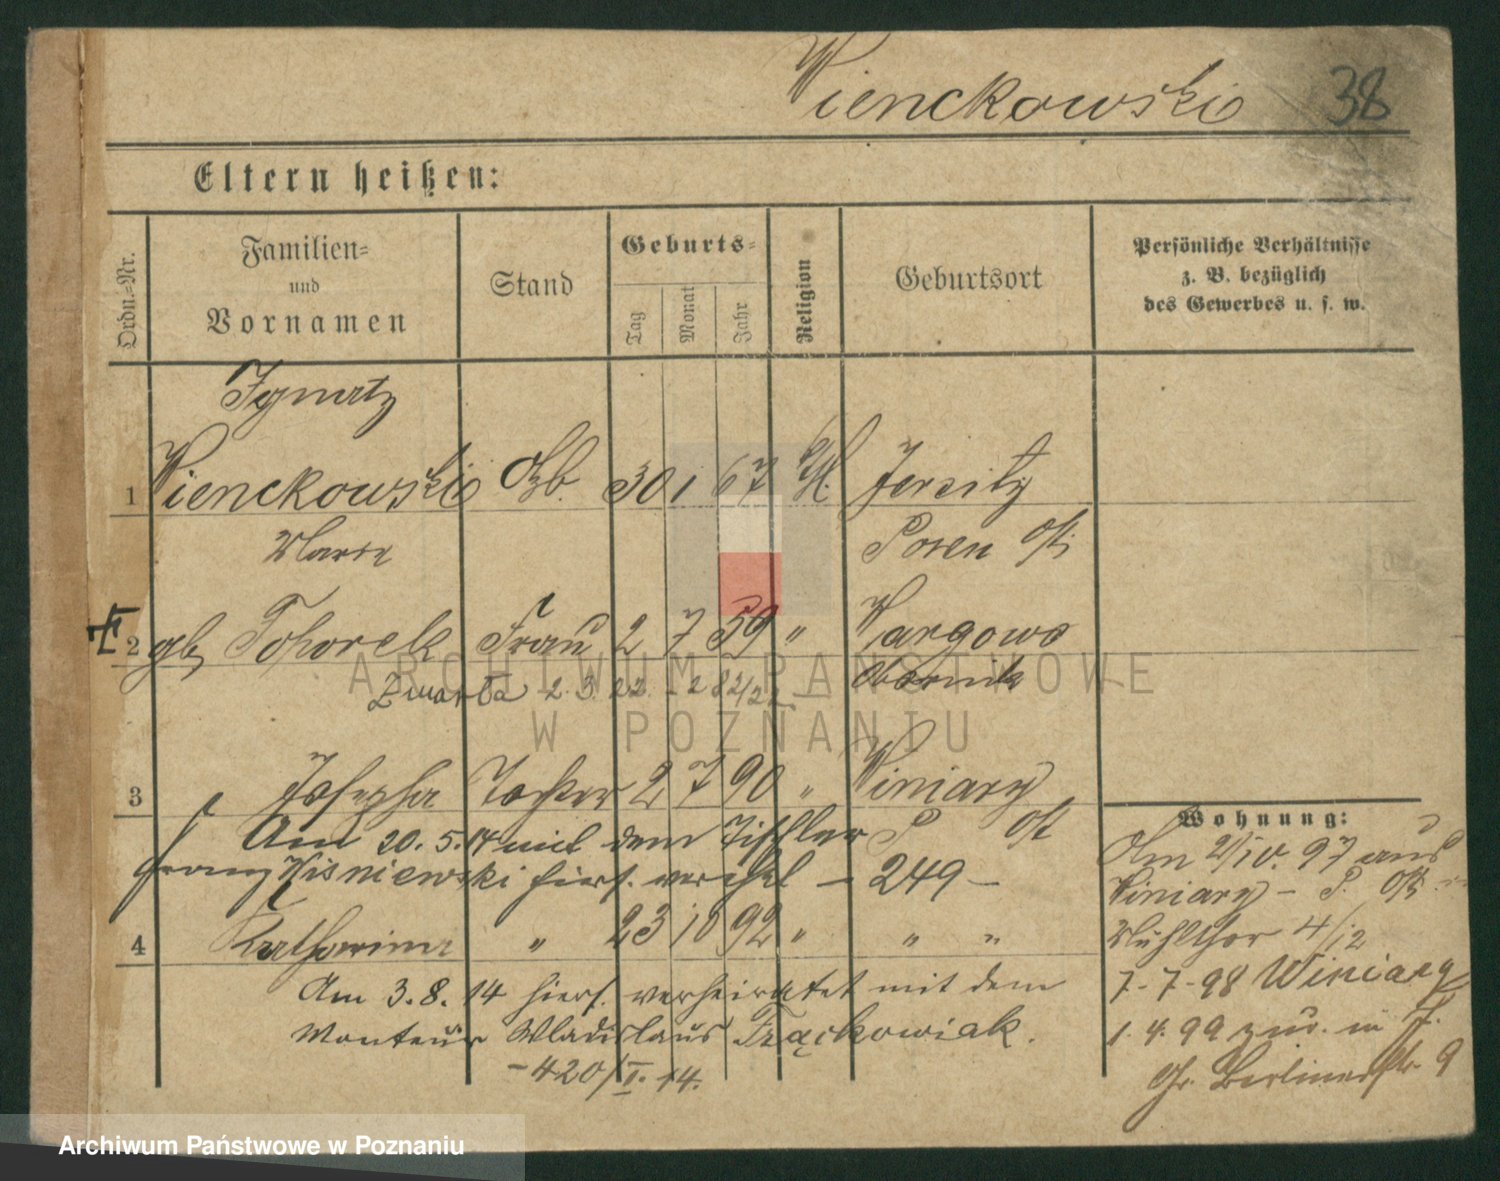 Wienckowski 38
Eltern heißen:
Ordn.=Nr.
Familien=
und
Vornamen
Stand
Geburts=
Tag
Monat
Jahr
Religion
Geburtsort
Persönliche Verhältnisse
z. B. bezüglich
des Gewerbes u. s. w.
Ignatz
1 Wienckowski 30 1 67 Jersitz
Posen Ost
2 gb Tohorek Frau 2 7 59 " Wargowo
Zmarła 2.3.22. Obornik
3 Josepha Tochter 2 7 90 " Winiary
Am 20.5.14 mit dem Tischler P Ost
Franz Wisniewski hiers. verehel – 249 –
4 Katharina " 23 10 92 " " "
Am 3.8.14 hiers. verheiratet mit dem
Monteur Wladislaus Frąckowiak.
– 420/I.14.
Wohnung:
Am 2/10. 97 aus
Winiary – P. Ost
Mühlthor 4/12
7.-7.-98 Winiary
1.4.99 zur. in
Gr. Berlinerstr. 9
ARCHIWUM PAŃSTWOWE
W POZNANIU
Archiwum Państwowe w Poznaniu